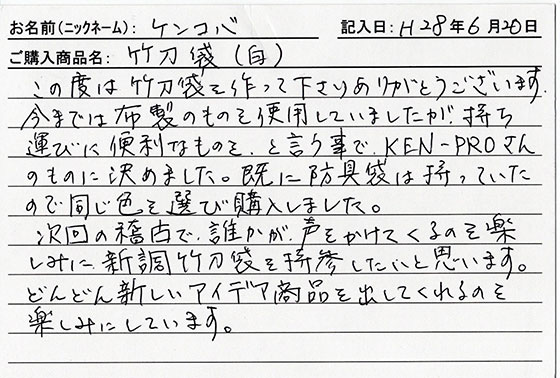 お名前(ニックネーム): ケンコバ 記入日: H28年6月20日
ご購入商品名: 竹刀袋(白)
この度は竹刀袋を作って下さりありがとうございます。
今までは布製のものを使用していましたが、持ち
運びに便利なものを、と言う事で、KEN-PROさん
のものに決めました。既に防具袋は持っていた
ので同じ色を選び購入しました。
次回の稽古で、誰かが、声をかけてくるのを楽
しみに、新調竹刀袋を持参したいと思います。
どんどん新しいアイデア商品を出してくれるのを
楽しみにしています。